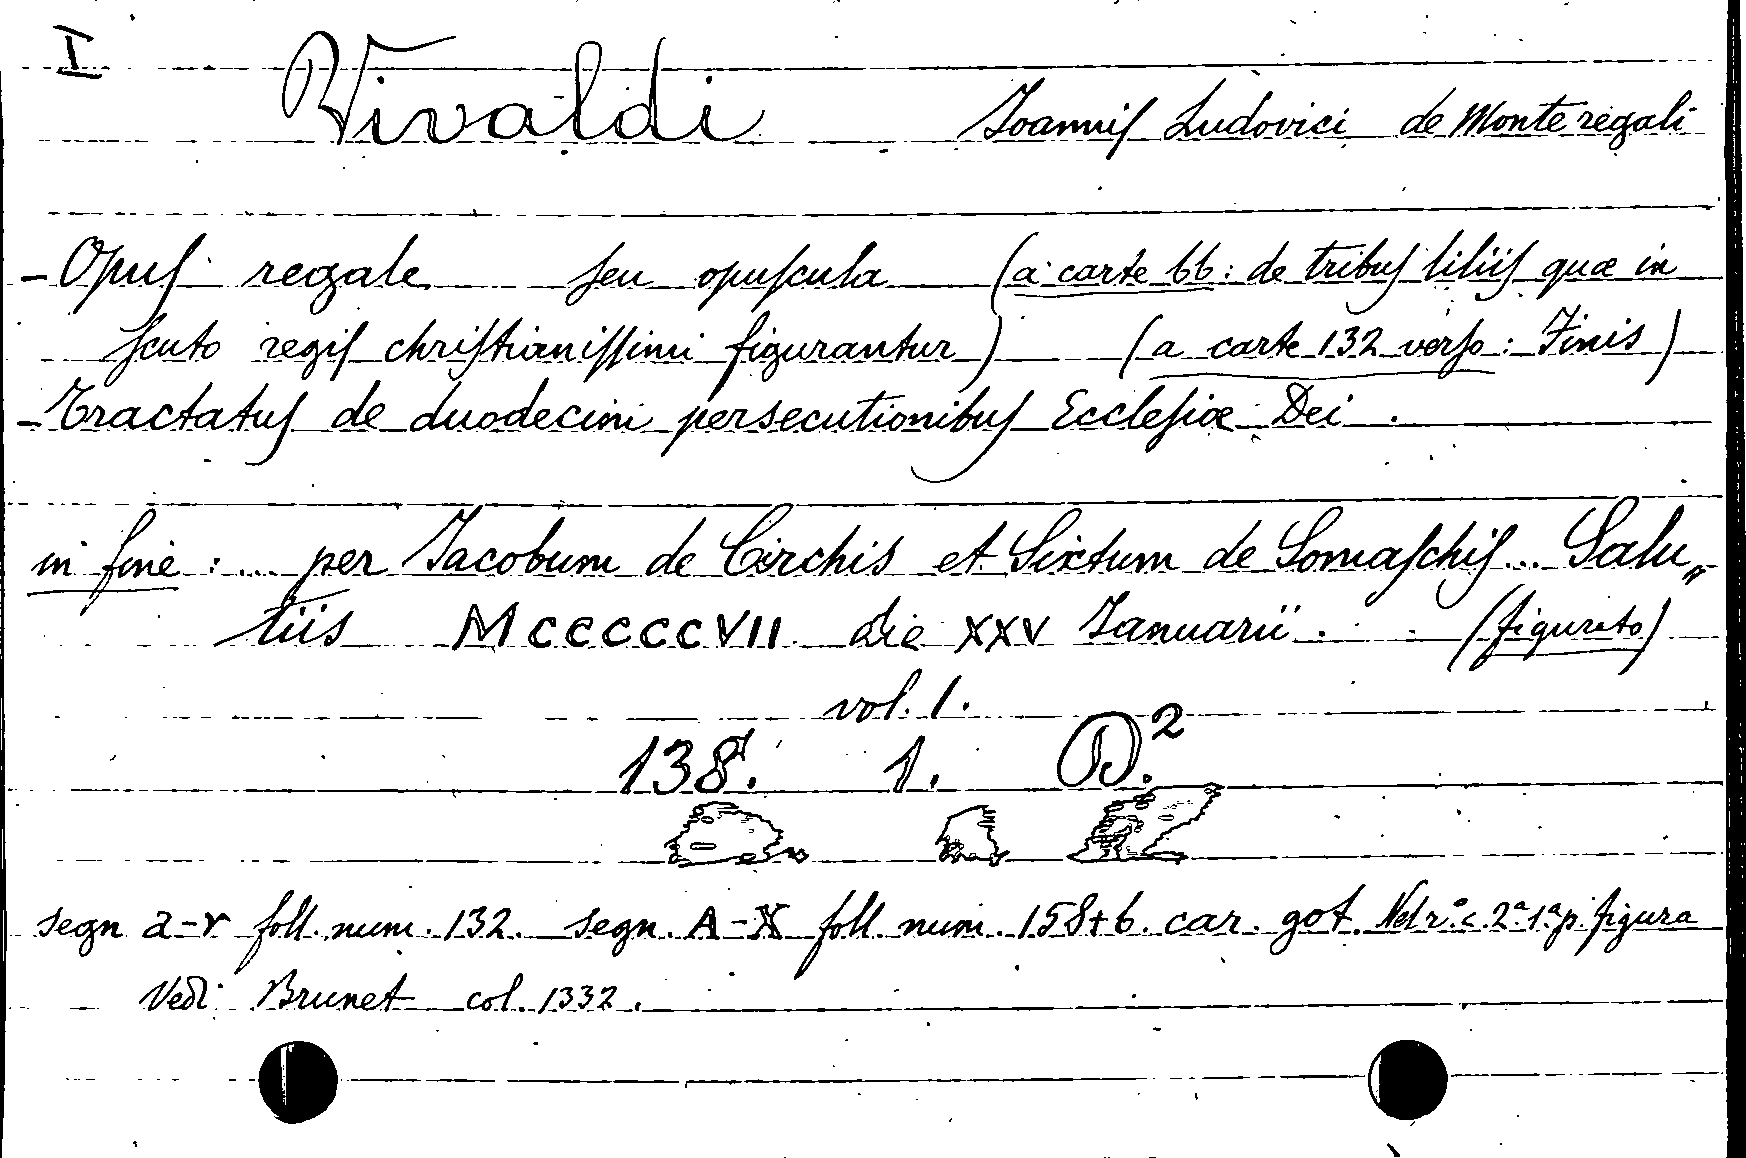 I
Vivaldi Ioannis Ludovici de Monte regali
- Opus regale seu opuscula (a carte 66: de tribus liliis quæ in
scuto regis christianissimi figurantur) (a carte 132 verso: Finis)
- Tractatus de duodecim persecutionibus Ecclesiæ Dei.
in fine: ... per Jacobum de Circhis et Sixtum de Somaschis... Salu„
tiis MCCCCCVII die XXV Ianuarii. (figurato)
vol. 1.
138. 1. D.²
segn a-r foll. num. 132. segn. A-X foll num. 158+6. car. got. Nel r.º c. 2ª 1ª p. figura
Vedi Brunet col. 1332.